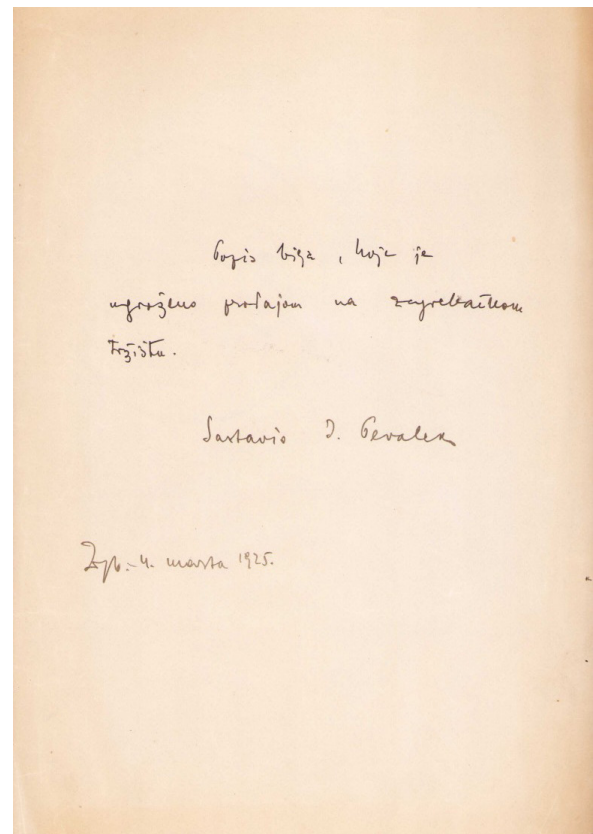 Popis bilja, koje je
ugroženo prodajom na zagrebačkom
tržištu.
Sastavio I. Pevalek
Zgb. 4. marta 1925.